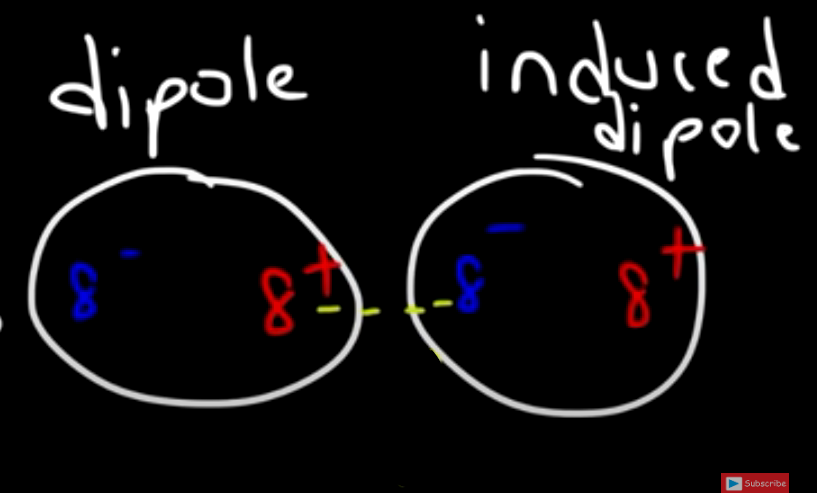 dipole
induced
dipole
δ- δ+ δ- δ+
Subscribe